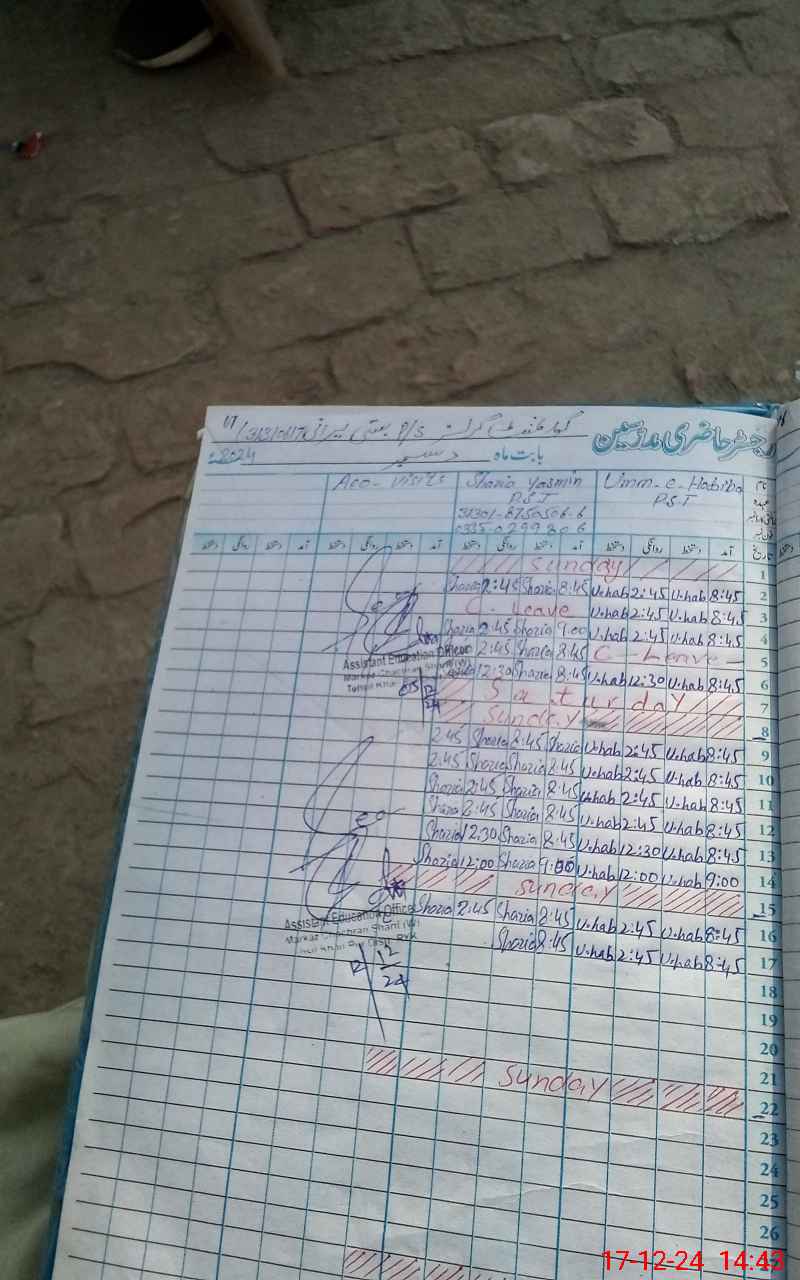 رجسٹر حاضری مدرسین
بابت ماہ دسمبر 2024ء
Umm-e-Habiba P.S.T
Shazia Yasmin P.S.T
Aeo-Visits
آمد دستخط روانگی دستخط آمد دستخط روانگی دستخط آمد دستخط روانگی دستخط آمد دستخط روانگی دستخط
1 Sunday
2 8:45 U.hab 2:45 U.hab 8:45 Shazia 2:45 Shazia
3 8:45 U.hab 2:45 U.hab C-Leave
4 8:45 U.hab 2:45 U.hab 9:00 Shazia 2:45 Shazia
5 C-Leave 8:45 Shazia 2:45
6 8:45 U.hab 12:30 U.hab 8:45 Shazia 12:30
7 Saturday
8 Sunday
9 8:45 U.hab 2:45 U.hab Shazia 8:45 Shazia 2:45
10 8:45 U.hab 2:45 U.hab 8:45 Shazia Shazia 2:45
11 8:45 U.hab 2:45 U.hab 8:45 Shazia 2:45 Shazia
12 8:45 U.hab 2:45 U.hab 8:45 Shazia 2:45 Shazia
13 8:45 U.hab 12:30 U.hab 8:45 Shazia 12:30 Shazia
14 9:00 U.hab 12:00 U.hab 9:00 Shazia 12:00 Shazia
15 Sunday
16 8:45 U.hab 2:45 U.hab 8:45 Shazia 2:45 Shazia
17 8:45 U.hab 2:45 U.hab 8:45 Shazia
18
19
20
21
22 Sunday
23
24
25
26
Assistant Education Officer
Assistant Education Officer
Markaz Chachran Sharif (W)
12
24
17-12-24 14:43